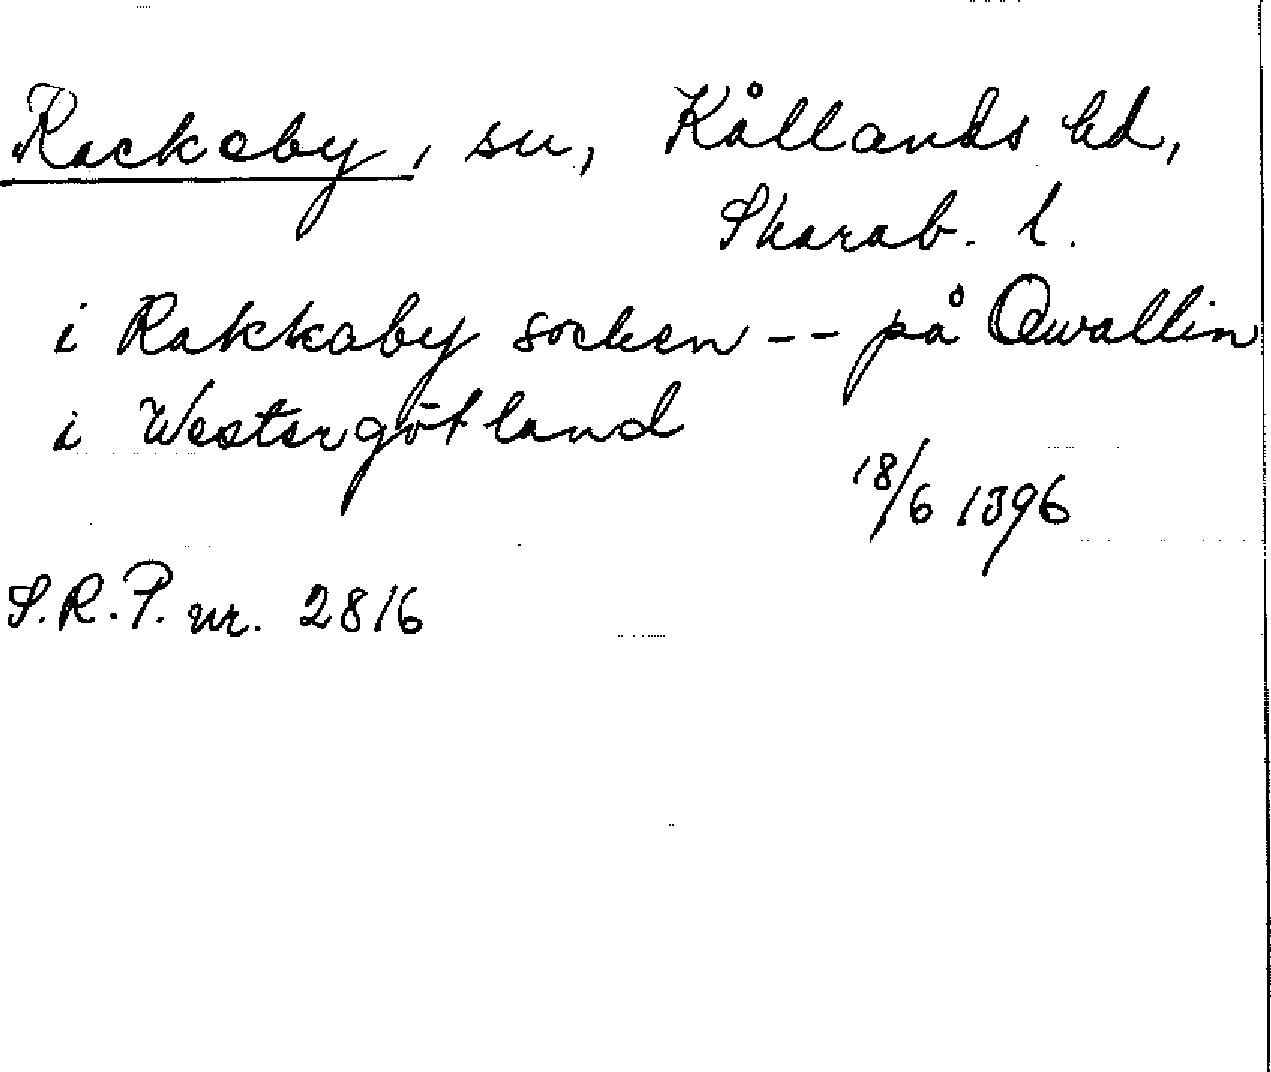 Rackeby, sn, Kållands hd,
Skarab. l.
i Rakkaby socken -- på Qwallin
i Westergötland
18/6 1396
S.R.P. nr. 2816